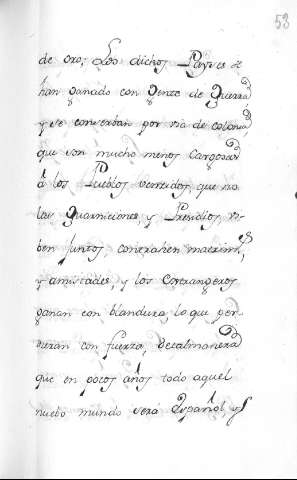 53
de oro; Los dichos Payses se
han ganado con gente de Guerra
y se conserban por via de colonias
que son mucho menos cargosas
á los Pueblos vencidos, que no
las Guarniciones, y Presidios,
ben juntos, contrahen matrim.os,
y amistades, y los Extrangeros
ganan con blandura, lo que por
duran con fuerza, Decalmanera
que en pocos años todo aquel
nuebo mundo será Español, y